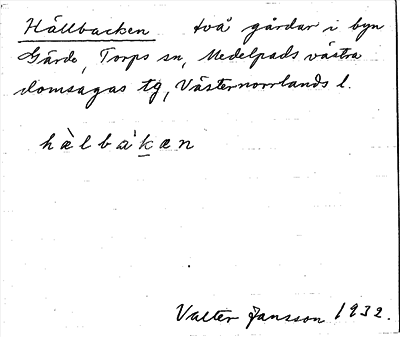 Hällbacken två gårdar i byn
Gärde, Torps sn, Medelpads västra
domsagas tg, Västernorrlands l.
hàlbákæn
Valter Jansson 1932.